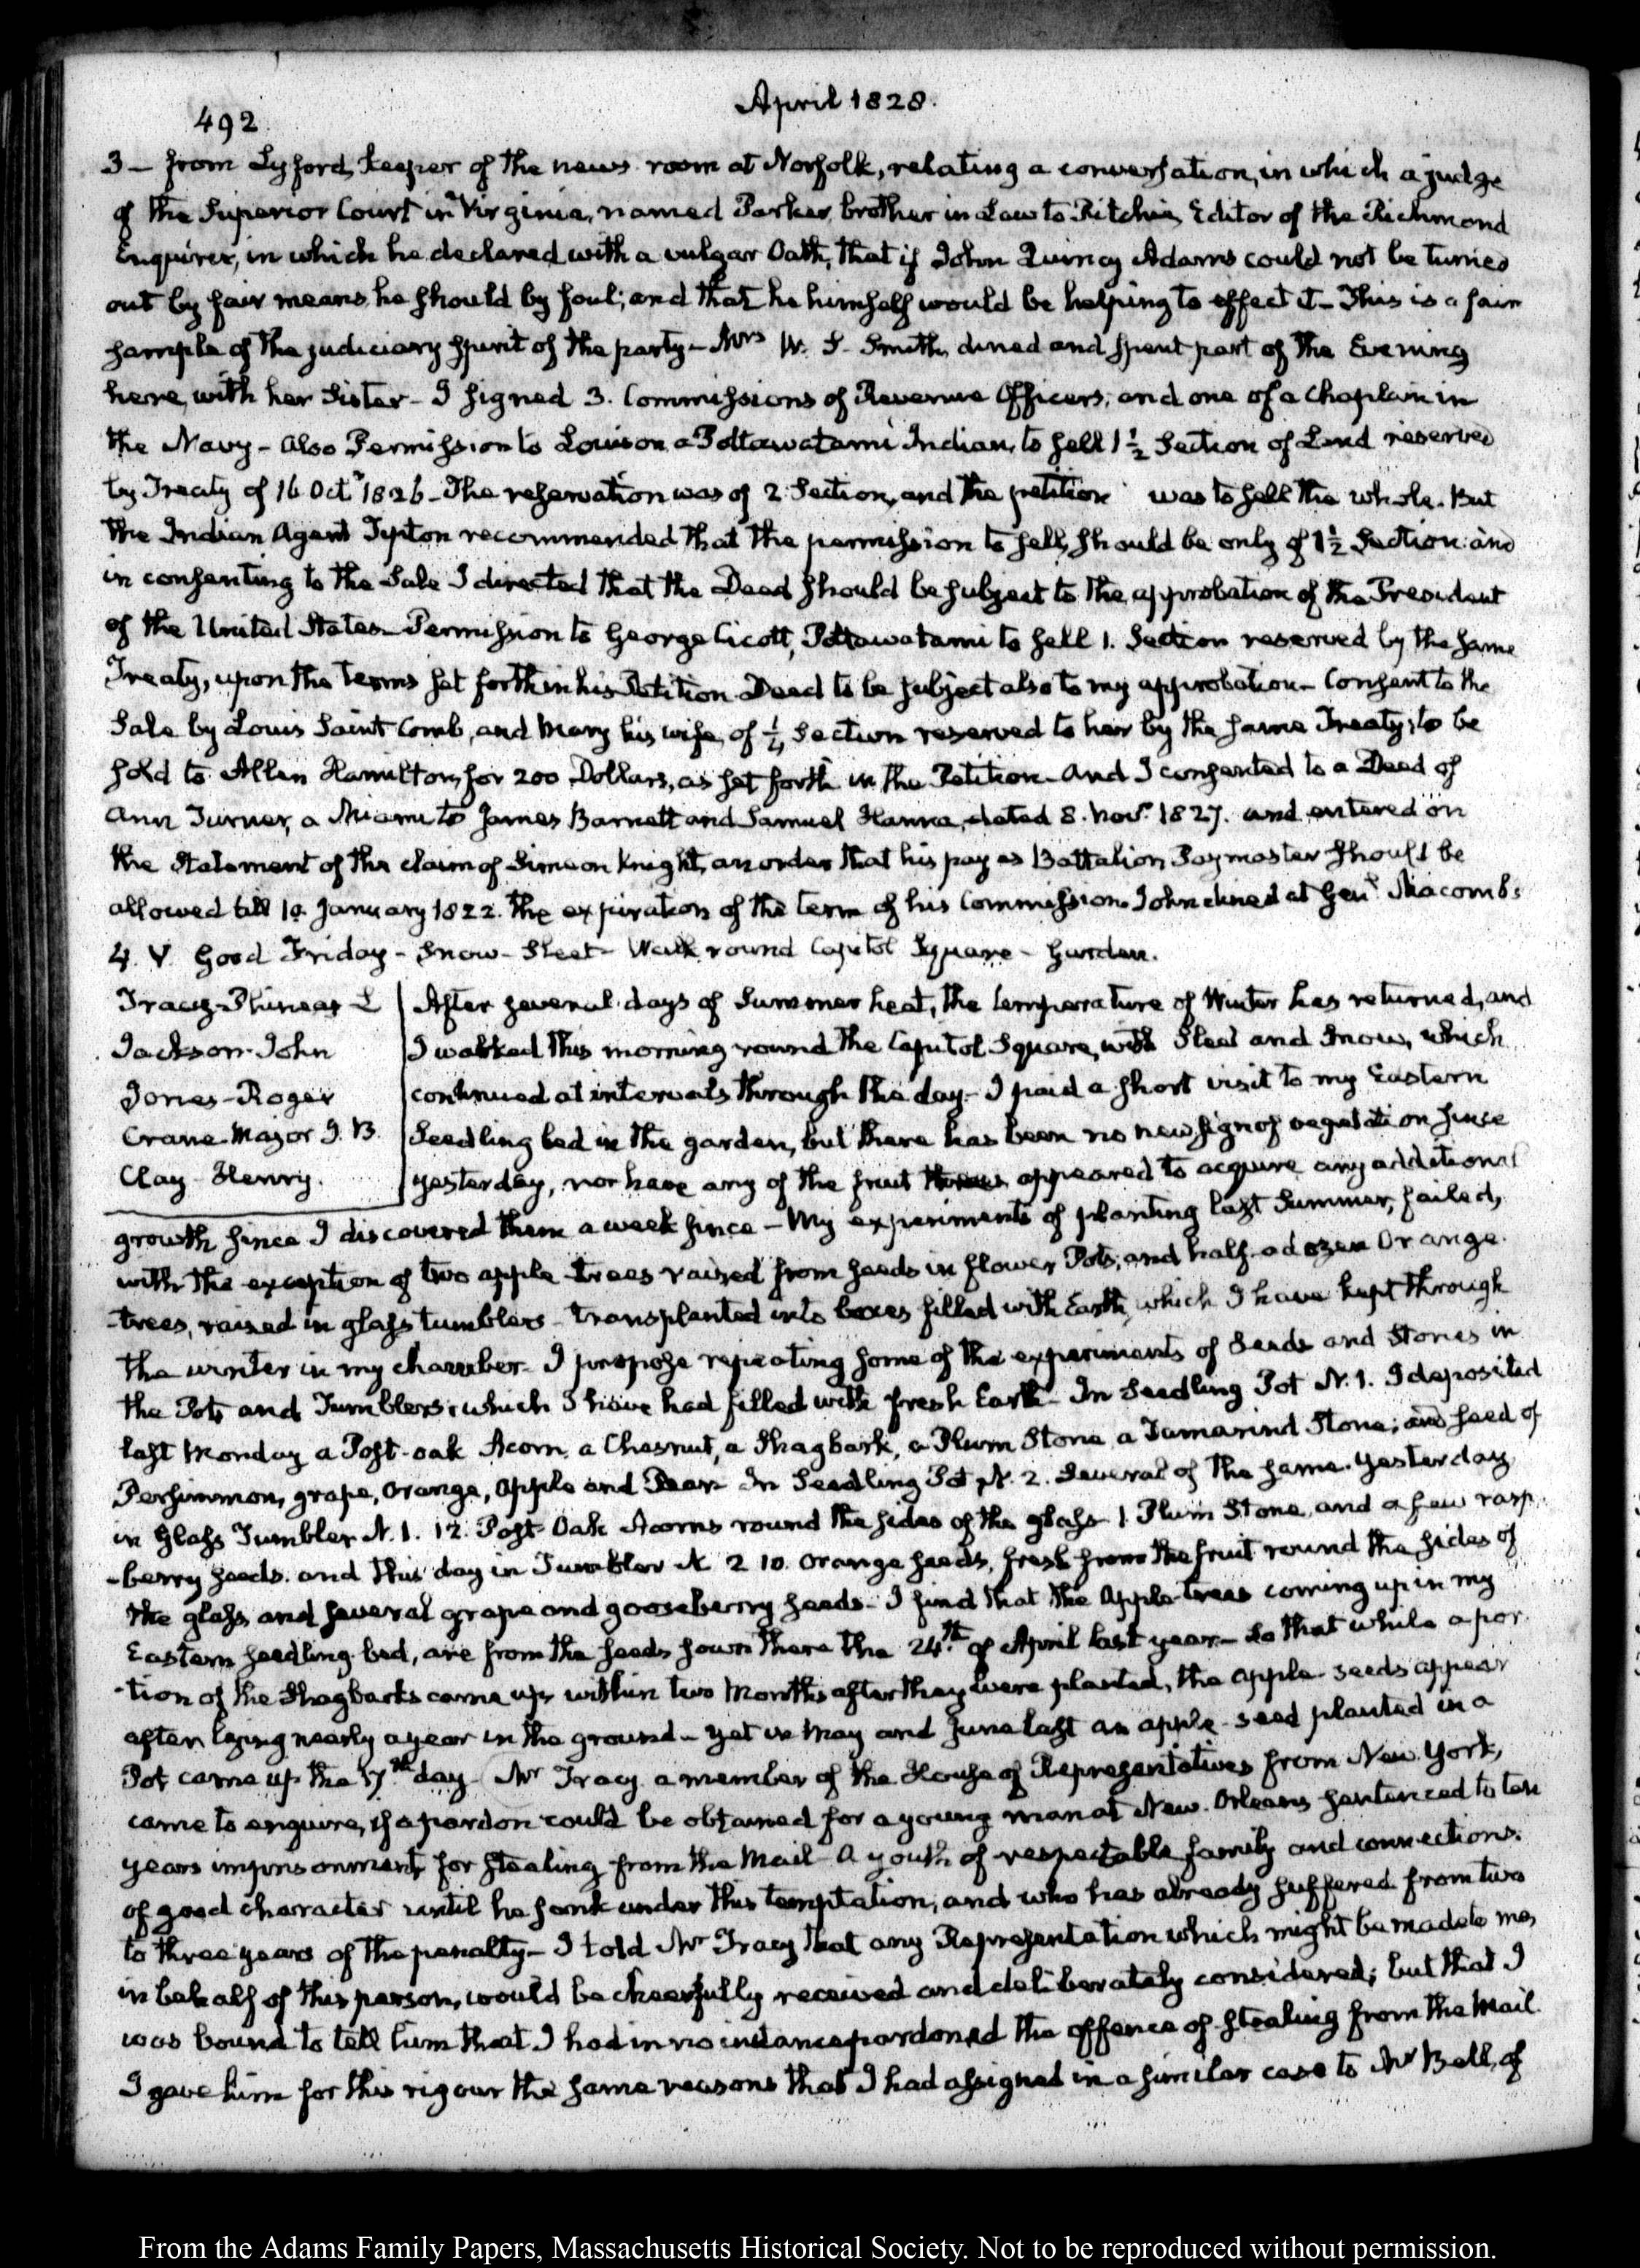 492
April 1828.
3 – from Lyford, keeper of the news room at Norfolk, relating a conversation, in which a judge
of the Superior Court in Virginia, named Parker, brother in Law to Ritchie, Editor of the Richmond
Enquirer, in which he declared with a vulgar Oath, that if John Quincy Adams could not be turned
out by fair means, he should by foul; and that he himself would be helping to effect it – This is a fair
sample of the judiciary spirit of the party – Mrs W. S. Smith, dined and spent part of the Evening
here, with her Sister – I signed 3. Commissions of Revenue Officers, and one of a Chaplain in
the Navy – also Permission to Louison, a Pottawatami Indian, to sell 1 1/2 Section of Land reserved
by Treaty of 16 Octr 1826 – The reservation was of 2 Section, and the petition was to sell the whole. But
the Indian Agent Tipton recommended that the permission to sell, should be only of 1 1/2 Section: and
in consenting to the Sale I directed that the Deed should be subject to the approbation of the President
of the United States – Permission to George Cicott, Pottawatami to sell 1. Section reserved by the same
Treaty, upon the terms set forth in his Petition – Deed to be subject also to my approbation – Consent to the
Sale by Louis Saint Comb, and Mary his wife, of 1/4 Section reserved to her by the same Treaty, to be
sold to Allen Hamilton, for 200 Dollars, as set forth in the Petition – And I consented to a Deed of
Ann Turner, a Miami to James Barnett and Samuel Hanna, dated 8. Novr 1827. and entered on
the Statement of the claim of Simeon Knight, an order that his pay as Battalion Paymaster should be
allowed till 19 January 1822. the expiration of the term of his Commission. John dined at Genl Macomb's
4. V. Good Friday – Snow – Sleet – Walk round Capitol Square – Garden.
Tracy – Phineas L
Jackson – John
Jones – Roger
Crane – Major I. B.
Clay – Henry.
After several days of Summer heat, the temperature of Winter has returned, and
I walked this morning round the Capitol Square, with Sleet and Snow, which
continued at intervals through the day – I paid a short visit to my Eastern
Seedling bed in the garden, but there has been no new sign of vegetation since
yesterday, nor have any of the fruit appeared to acquire any additional
growth since I discovered them a week since – My experiments of planting last Summer, failed,
with the exception of two apple trees raised from seeds in flower Pots, and half a dozen Orange-
-trees, raised in glass tumblers – transplanted into boxes filled with Earth, which I have kept through
the winter in my chamber – I propose repeating some of the experiments of Seeds and Stones in
the Pots and Tumblers, which I have had filled with fresh Earth – In Seedling Pot N. 1. I deposited
last Monday a Post-oak Acorn, a Chesnut, a Shagbark, a Plum Stone, a Tamarind Stone; and seed of
Persimmon, grape, Orange, Apple and Pear – In Seedling Pot N. 2. Several of the same. Yesterday
in Glass Tumbler N. 1. 12. Post-Oak Acorns round the sides of the glass – 1. Plum Stone, and a few rasp
-berry seeds. and this day in Tumbler N 2 10. orange seeds, fresh from the fruit round the sides of
the glass, and several grape and gooseberry seeds – I find that the Apple-trees coming up in my
Eastern seedling bed, are from the seeds sown there the 24th of April last year – So that while a por-
-tion of the Shagbarks came up within two Months after they were planted, the apple-seeds appear
after lying nearly a year in the ground – Yet in May and June last an apple-seed planted in a
Pot came up the 17th day – Mr Tracy a member of the House of Representatives from New York,
came to enquire, if a pardon could be obtained for a young man at New-Orleans sentenced to ten
years imprisonment, for stealing from the Mail – A youth of respectable family and connections.
of good character until he sunk under this temptation, and who has already suffered from two
to three years of the penalty – I told Mr Tracy that any Representation which might be made to me,
in behalf of this person, would be cheerfully received and deliberately considered; but that I
was bound to tell him that I had in no instance pardoned the offence of stealing from the Mail.
I gave him for this rigour the same reasons that I had assigned in a similar case to Mr Bell, of
From the Adams Family Papers, Massachusetts Historical Society. Not to be reproduced without permission.